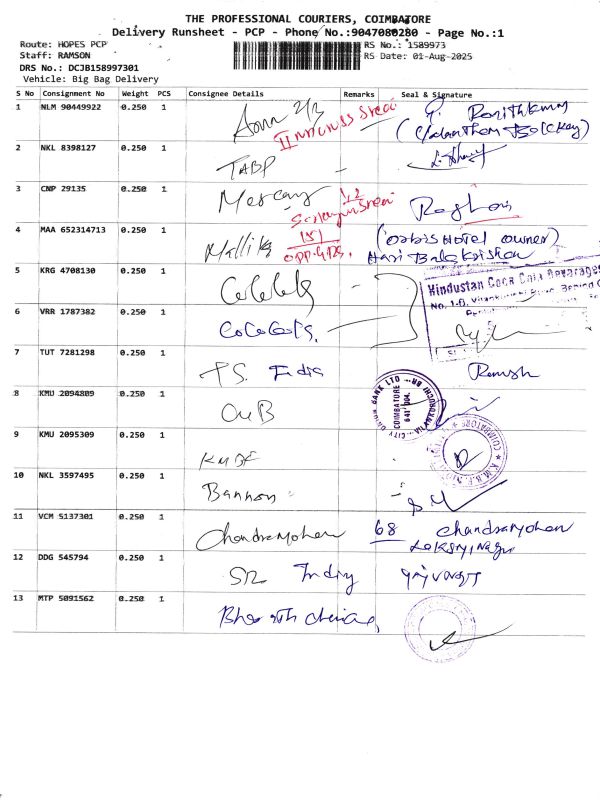 THE PROFESSIONAL COURIERS, COIMBATORE
Delivery Runsheet - PCP - Phone No.:9047080280 - Page No.:1
Route: HOPES PCP
RS No.: 1589973
Staff: RAMSON
RS Date: 01-Aug-2025
DRS No.: DCJB158997301
Vehicle: Big Bag Delivery
S No Consignment No Weight PCS Consignee Details Remarks Seal & Signature
1 NLM 90449922 0.250 1
2 NKL 8398127 0.250 1 TABP
3 CNP 29135 0.250 1 Mercury
4 MAA 652314713 0.250 1 Mallika 151 (Orbis Hotel owner)
OPP. Hari Balakrishnan
5 KRG 4708130 0.250 1 Hindustan Coca Cola Beverages
6 VRR 1787382 0.250 1
7 TUT 7281298 0.250 1 TS. India Ramesh
8 KMU 2094809 0.250 1 CUB
CITY UNION BANK LTD
COIMBATORE
641 004.
9 KMU 2095309 0.250 1 KMBF
COIMBATORE
10 NKL 3597495 0.250 1 Bannon
11 VCM 5137301 0.250 1 Chandramohan 68 Chandramohan
12 DDG 545794 0.250 1 India
13 MTP 5091562 0.250 1 Bharath